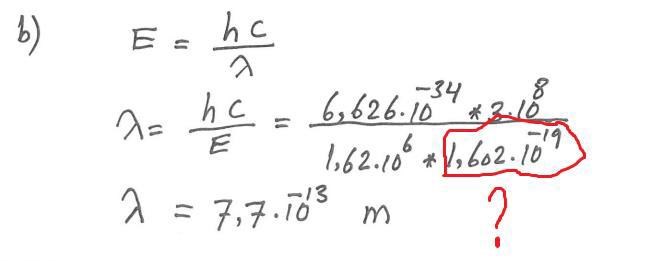 b) E = hc/λ
λ = hc/E = 6,626·10⁻³⁴ * 3·10⁸ / 1,62·10⁶ * 1,602·10⁻¹⁹
λ = 7,7·10⁻¹³ m ?